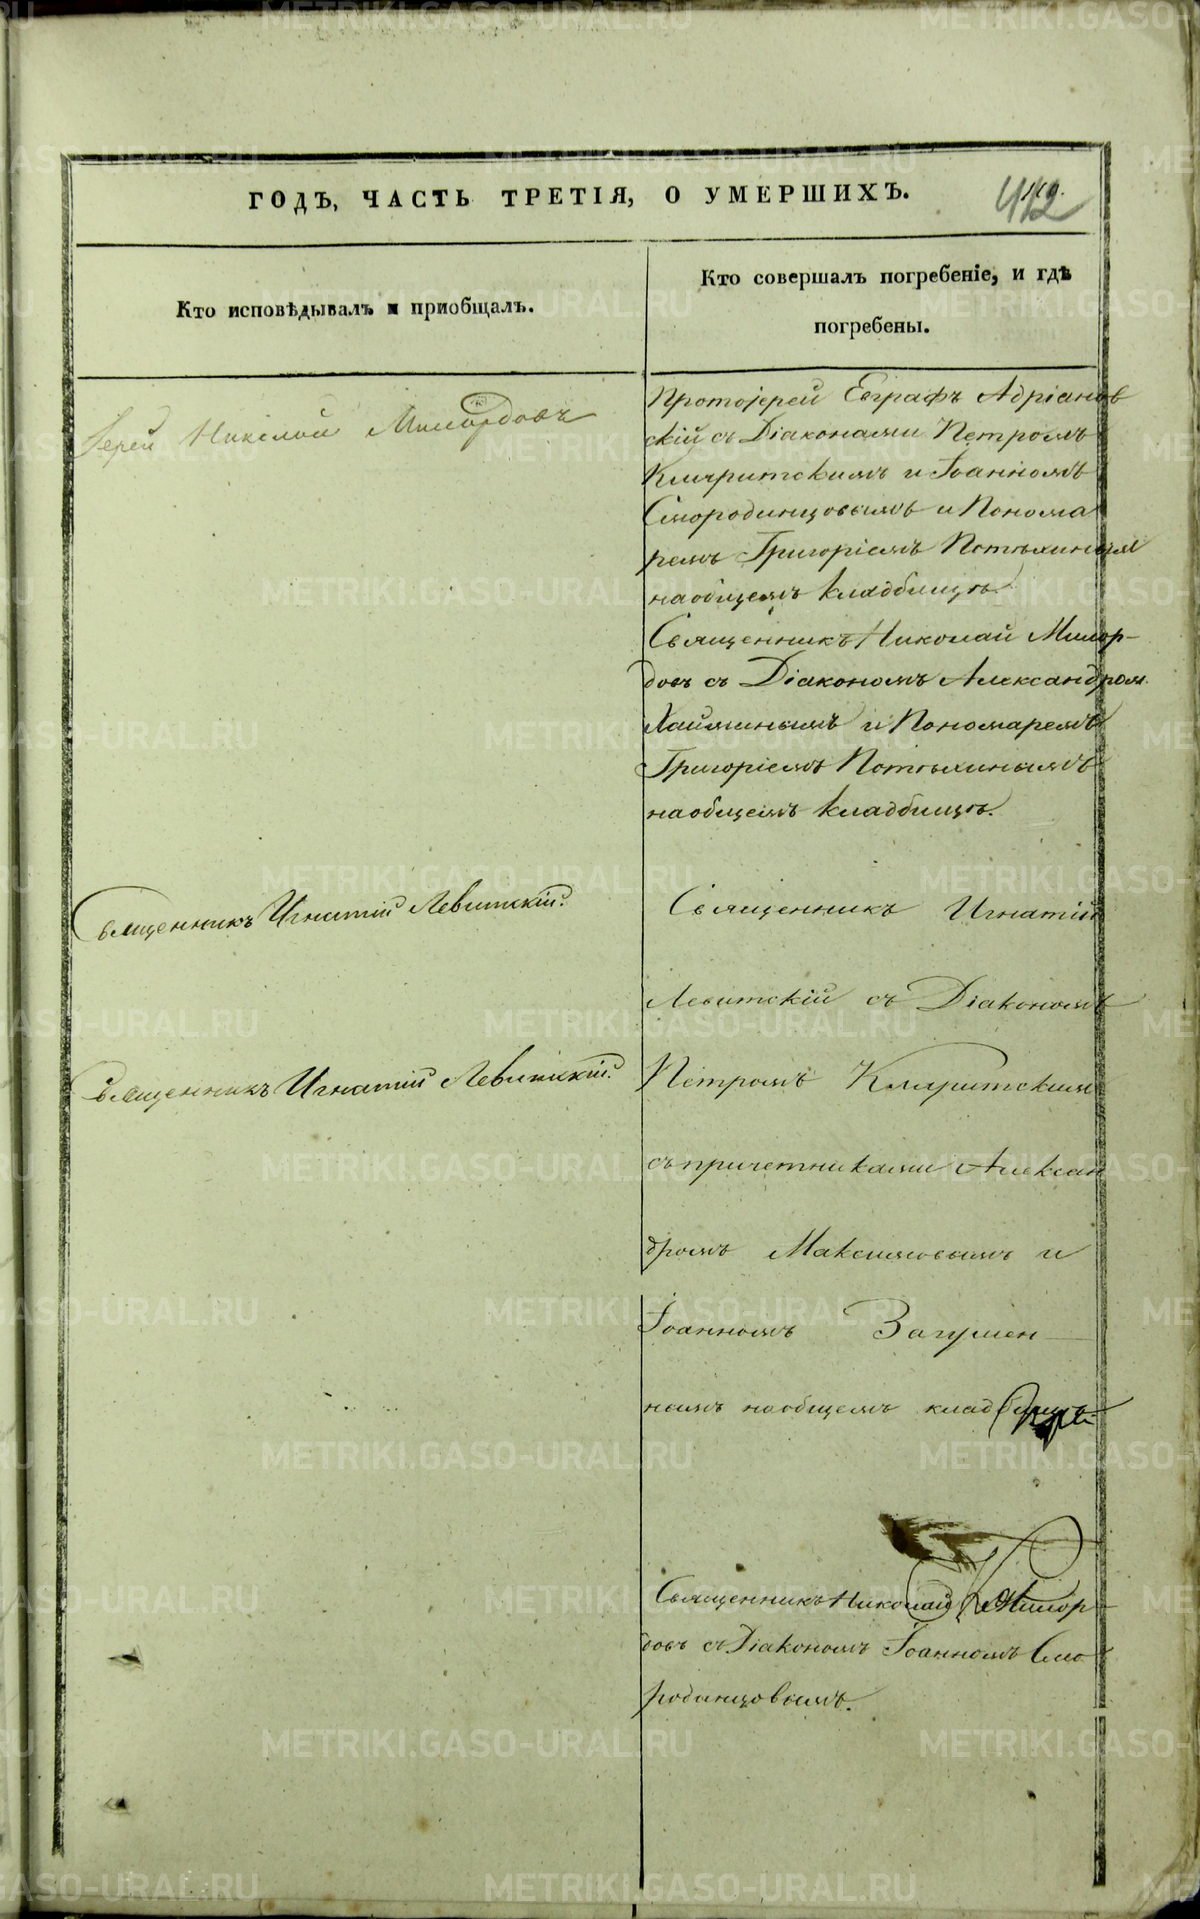 ГОДЪ, ЧАСТЬ ТРЕТІЯ, О УМЕРШИХЪ.
412
Кто исповѣдывалъ и приобщалъ.
Кто совершалъ погребеніе, и гдѣ
погребены.
Іерей Николай Милордовъ
Протоіерей Евграфъ Адріанов
скій съ Діаконами Петромъ
Кляритскимъ и Іоанномъ
Смородинцовымъ и Понома
ремъ Григоріемъ Потѣхинымъ
на общемъ кладбищѣ.
Священникъ Николай Милор-
довъ съ Діакономъ Александром
Хайминымъ и Пономаремъ
Григоріемъ Потѣхинымъ
на общемъ кладбищѣ.
Священникъ Игнатій Левитскій.
Священникъ Игнатій
Левитскій съ Діакономъ
Священникъ Игнатій Левитскій.
Петромъ Кляритским
съ причетниками Алексан
дромъ Максимовымъ и
Іоанномъ Загумен
нымъ на общемъ кладбищѣ
Священникъ Николай Милор
довъ съ Діакономъ Іоанномъ Смо
родинцовымъ.
METRIKI.GASO-URAL.RU